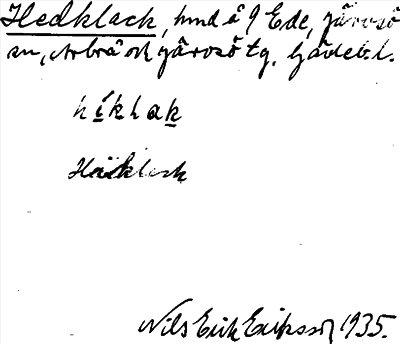 Hedklack, hmd å 9 Ede, Järvsö
sn, Arbrå och Järvsö tg, Gävlebl.
híklak
Häcklack
Nils Erik Eriksson 1935.